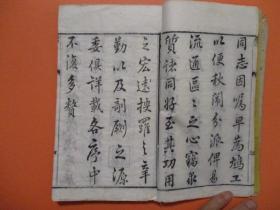 同志因嘱早蒇鸠工
以便秋闱分派俾易
流通区区之心窃冀
质诸同好至其功用
之宏远搜罗之辛
勤以及剞劂之源
委俱详载各序中
不复多赘